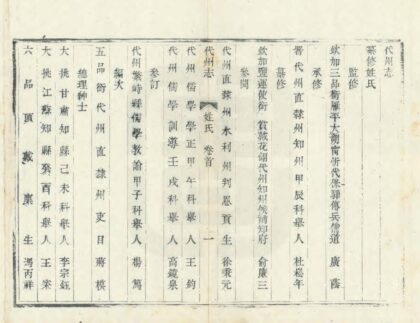 代州志
纂修姓氏
監修
欽加三品銜雁平大朔甯兵備道 廣
承修
署代州直隸州知州甲辰科舉人 杜崧年
纂修
欽加鹽運使銜 賞戴花翎代州知州候補知府 俞廉三
參閱
代州直隸州水利州判恩貢生 徐秉元
代州志 姓氏 卷首 一
代州儒學學正甲午科舉人 王鈞
代州儒學訓導壬戌科舉人 高鏡泉
參訂
代州繁峙縣儒學教諭甲子科舉人 楊篤
編次
五品銜代州直隸州吏目 蔣模
總理紳士
大挑甘肅知縣己未科舉人 李宗鈺
大挑江縣知縣癸酉科舉人 王
六品頂戴廩生 馮丙祥